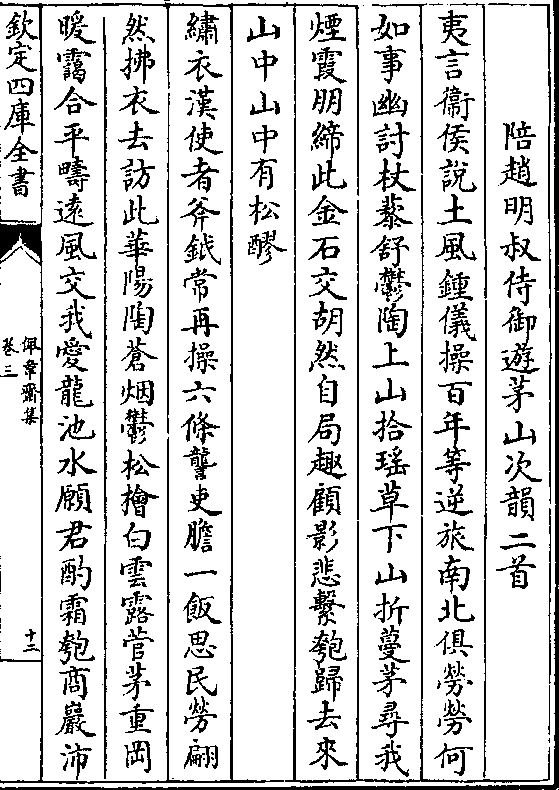 陪趙明叔侍御遊茅山次韻二首
夷言衞侯說土風鍾儀操百年等逆旅南北俱勞勞何
如事幽討杖藜舒鬱陶上山拾瑶草下山折蔓茅尋我
煙霞朋締此金石交胡然自局趣顧影悲繫匏歸去來
山中山中有松醪
繡衣漢使者斧鉞常再操六條讋吏膽一飯思民勞翩
然拂衣去訪此華陽陶蒼烟鬱松檜白雲露菅茅重岡
暖靄合平疇逺風交我愛龍池水願君酌霜匏商巖沛
欽定四庫全書
佩韋齋集
卷三
十三